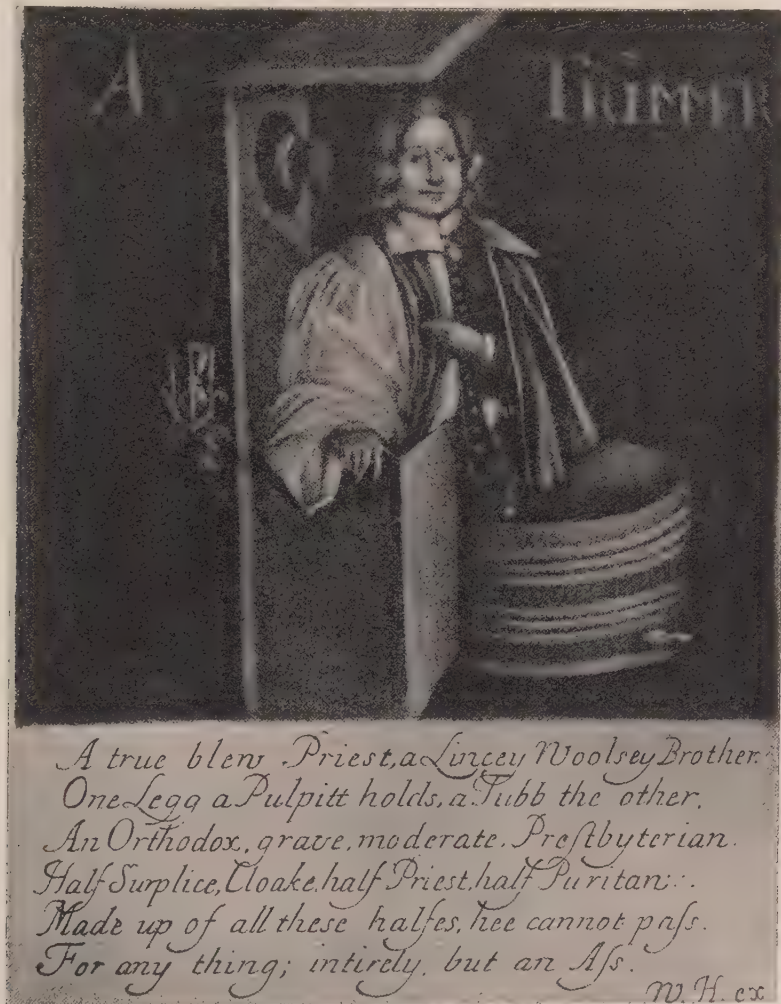 A Trimm
A true blew Priest, a Lincey Woolsey Brother.
One Legg a Pulpitt holds, a Tubb the other.
An Orthodox, grave, moderate, Preſtbyterian.
Half Surplice, Cloake, half Priest, half Puritan:.
Made up of all these halfes, hee cannot paſs.
For any thing; intirely, but an Aſs.
W. H. ex